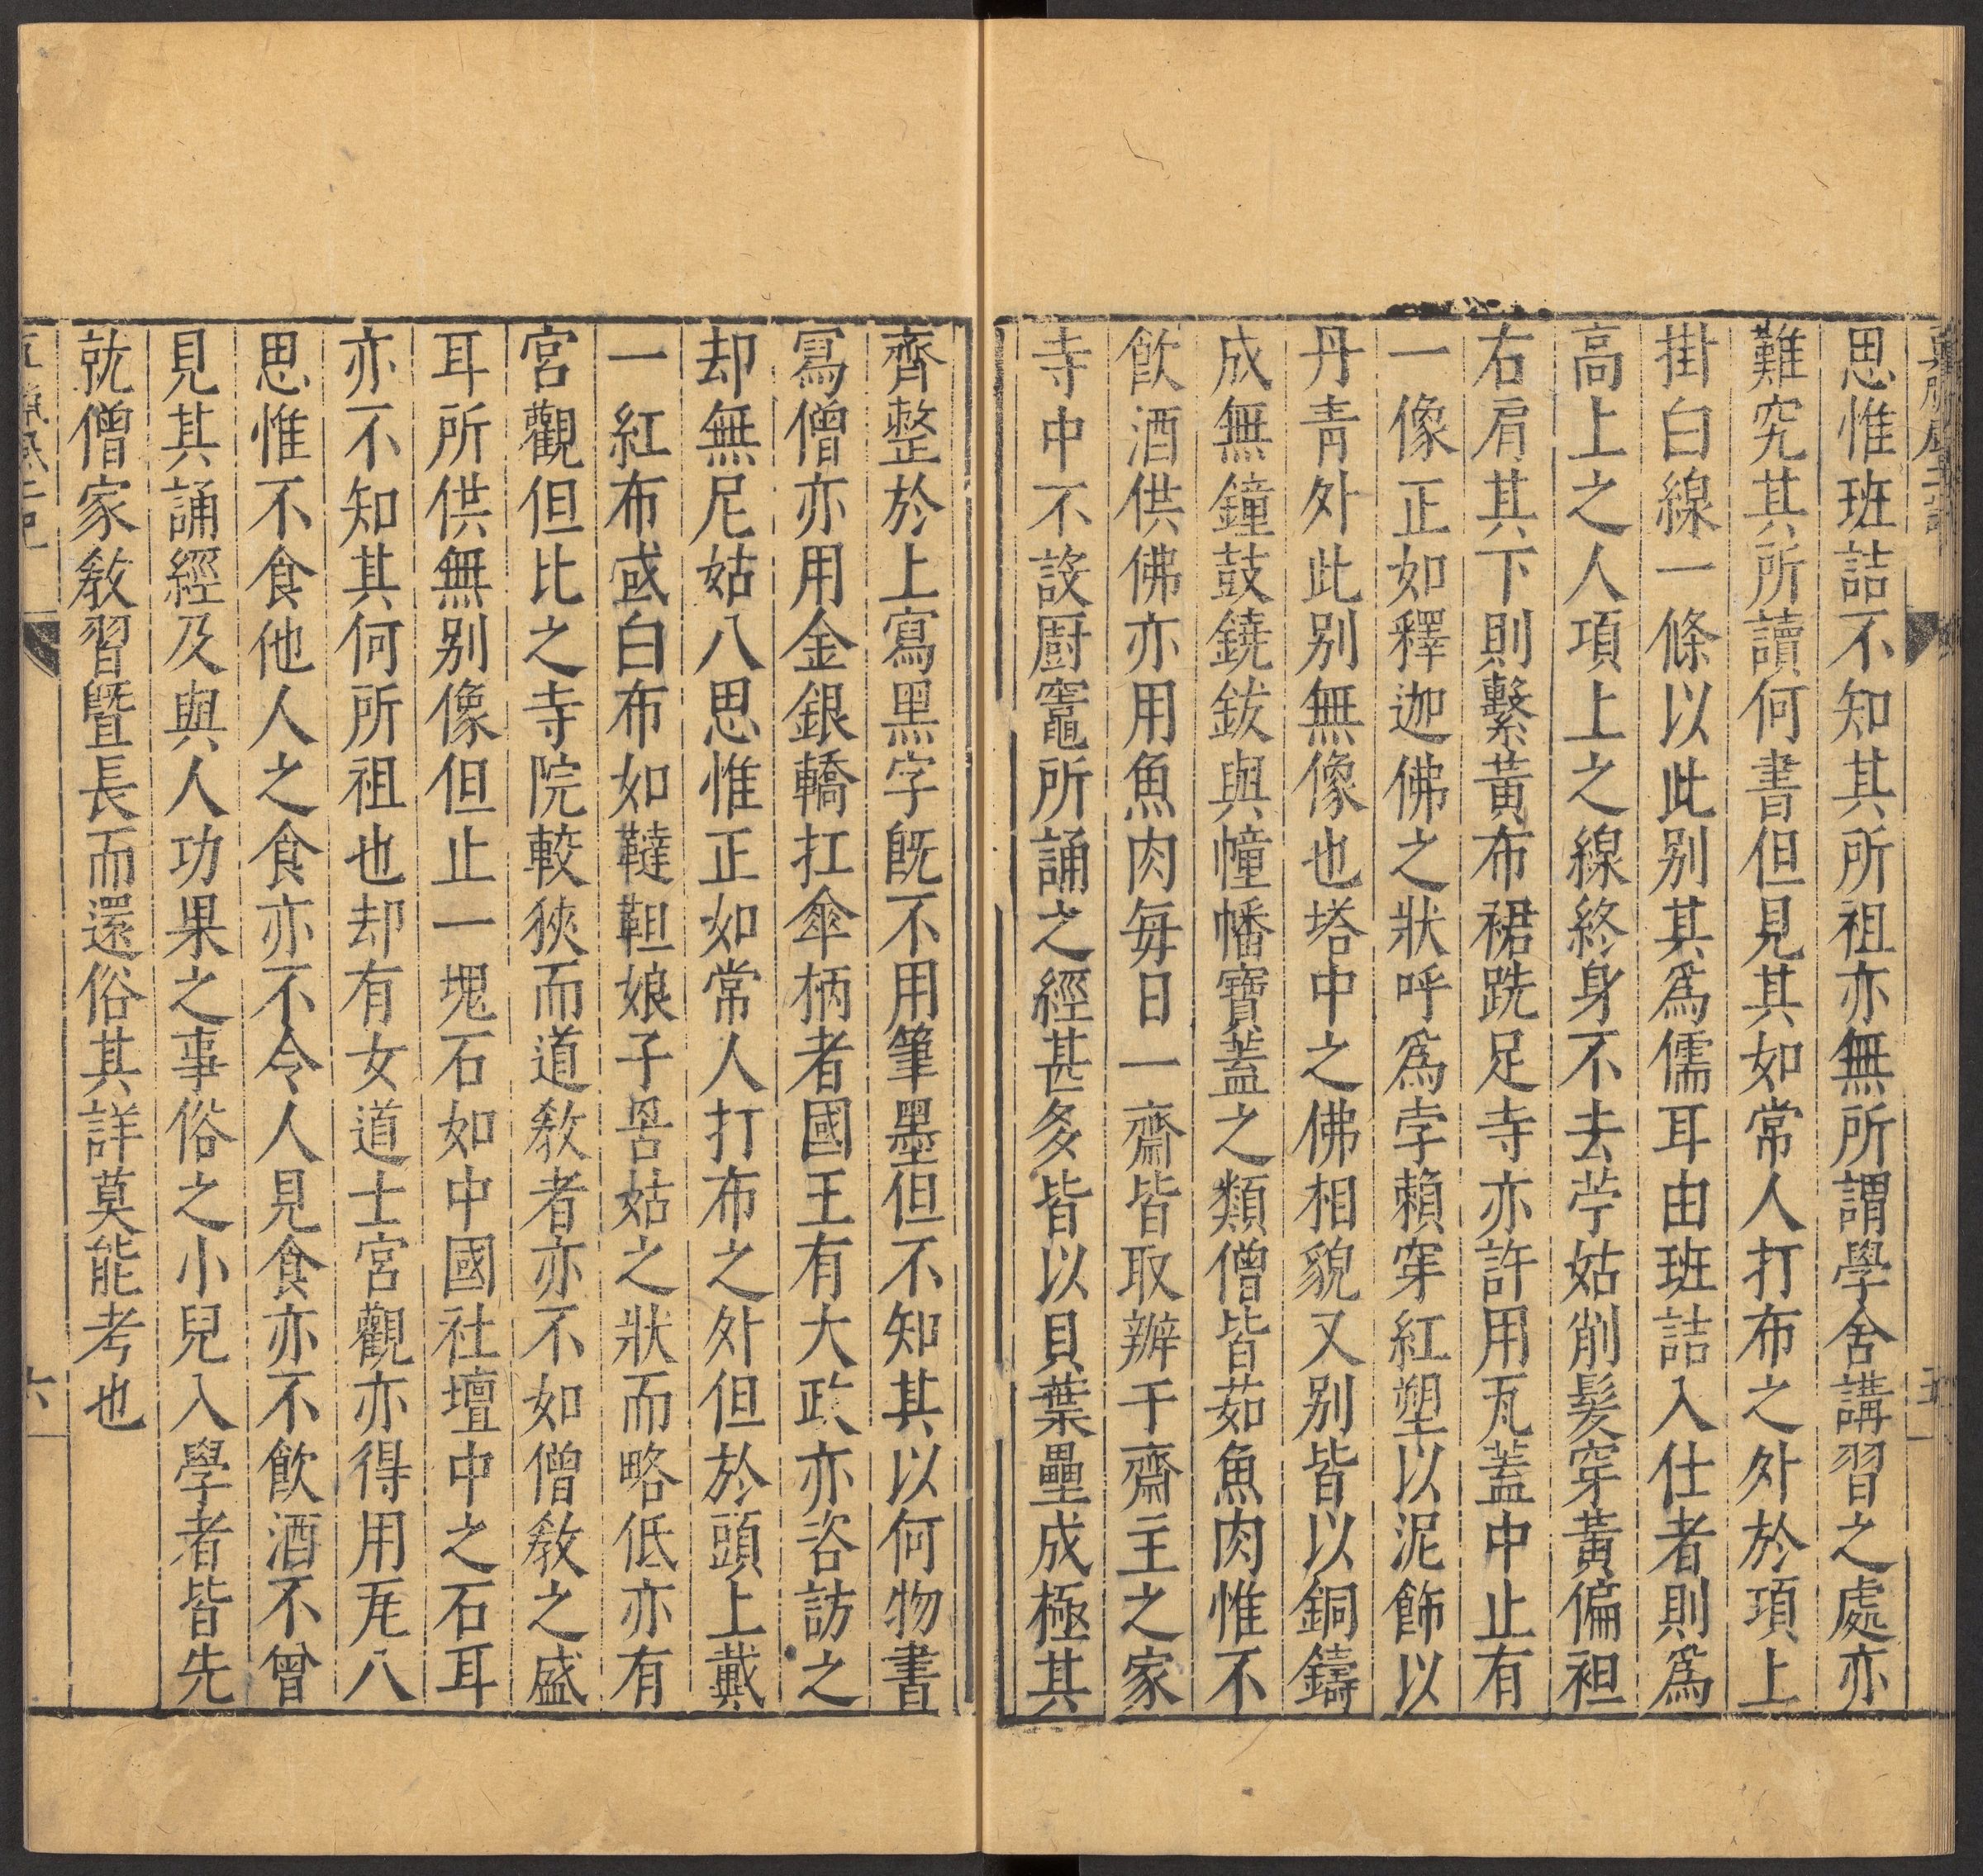 思惟班詰不知其所祖亦無所謂學舍講習之處亦
難究其所讀何書但見其如常人打布之外於項上
掛白線一條以此别其爲儒耳由班詰入仕者則爲
高上之人項上之線終身不去苧姑削髮穿黃偏袒
右肩其下則繫黃布裙跣足寺亦許用瓦蓋中止有
一像正如釋迦佛之狀呼爲孛賴穿紅塑以泥飾以
丹靑外此别無像也塔中之佛相貌又别皆以銅鑄
成無鐘鼓鐃鈸與幢幡寶蓋之類僧皆茹魚肉惟不
飮酒供佛亦用魚肉每日一齋皆取辦于齋主之家
寺中不設厨竈所誦之經甚多皆以貝葉疊成極其
齊整於上寫黑字旣不用筆墨但不知其以何物書
寫僧亦用金銀轎扛傘柄者國王有大政亦咨訪之
却無尼姑八思惟正如常人打布之外但於頭上戴
一紅布或白布如韃靼娘子罟姑之狀而略低亦有
宮觀但比之寺院較狹而道教者亦不如僧教之盛
耳所供無别像但止一塊石如中國社壇中之石耳
亦不知其何所祖也却有女道士宮觀亦得用瓦八
思惟不食他人之食亦不令人見食亦不飮酒不曾
見其誦經及與人功果之事俗之小兒入學者皆先
就僧家教習暨長而還俗其詳莫能考也
六